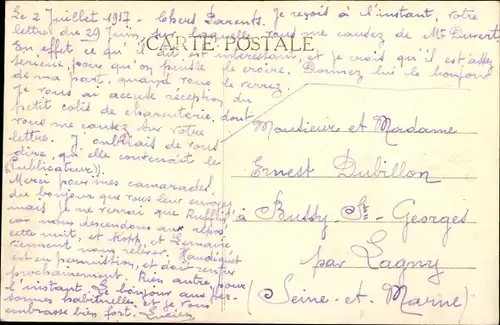 Le 2 Juillet 1917 - Chers Parents. Je reçois à l'instant, votre
lettre du 29 Juin, sur laquelle vous me causez de Mr Duvert.
CARTE POSTALE
En effet ce qu'il dit est intéressant, et je crois qu'il est assez
sérieux, pour qu'on puisse le croire. Donnez lui le bonjour
de ma part, quand vous le verrez.
Je vous ai accusé réception du
petit colis de charcuterie, dont
vous me causez sur votre
lettre. J'oubliais de vous
dire, qu'elle contenait le
(Publicateur).
Merci pour mes camarades,
du bonjour que vous leur envoyez
mais je ne verrai que Ruffié
car nous descendons au repos,
cette nuit, et Kopp, et Lemaire
viennent nous relever. Haudiquet
est en permission, et doit rentrer
prochainement. Rien autre, pour
l'instant. Le bonjour aux per-
sonnes habituelles, et je vous
embrasse bien fort. Lucien
Monsieur et Madame
Ernest Dubillon
à Bussy-St-Georges
par Lagny
(Seine-et-Marne)